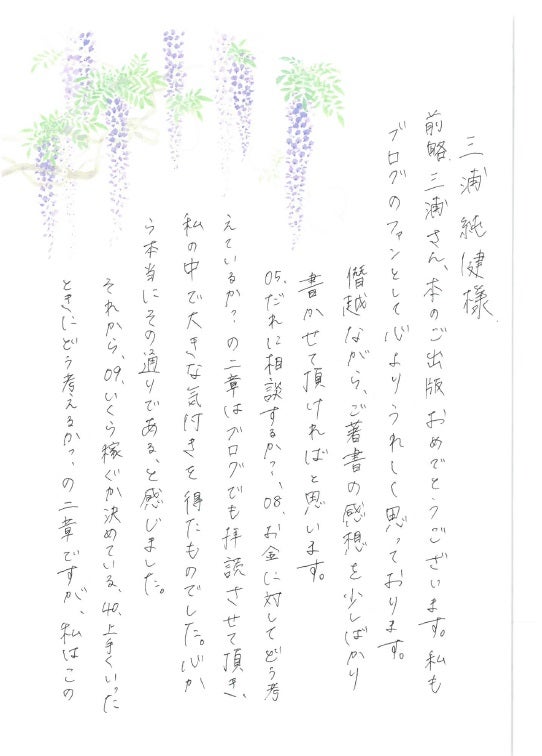 三浦純健様
前略、三浦さん、本のご出版おめでとうございます。私も
ブログのファンとして心よりうれしく思っております。
僭越ながら、ご著書の感想を少しばかり
書かせて頂ければと思います。
05.だれに相談するか?、08.お金に対してどう考
えているか?の二章はブログでも拝読させて頂き、
私の中で大きな気付きを得たものでした。心か
ら本当にその通りである、と感じました。
それから、09.いくら稼ぐか決めている、40.上手くいった
ときにどう考えるか?、の二章ですが、私はこの